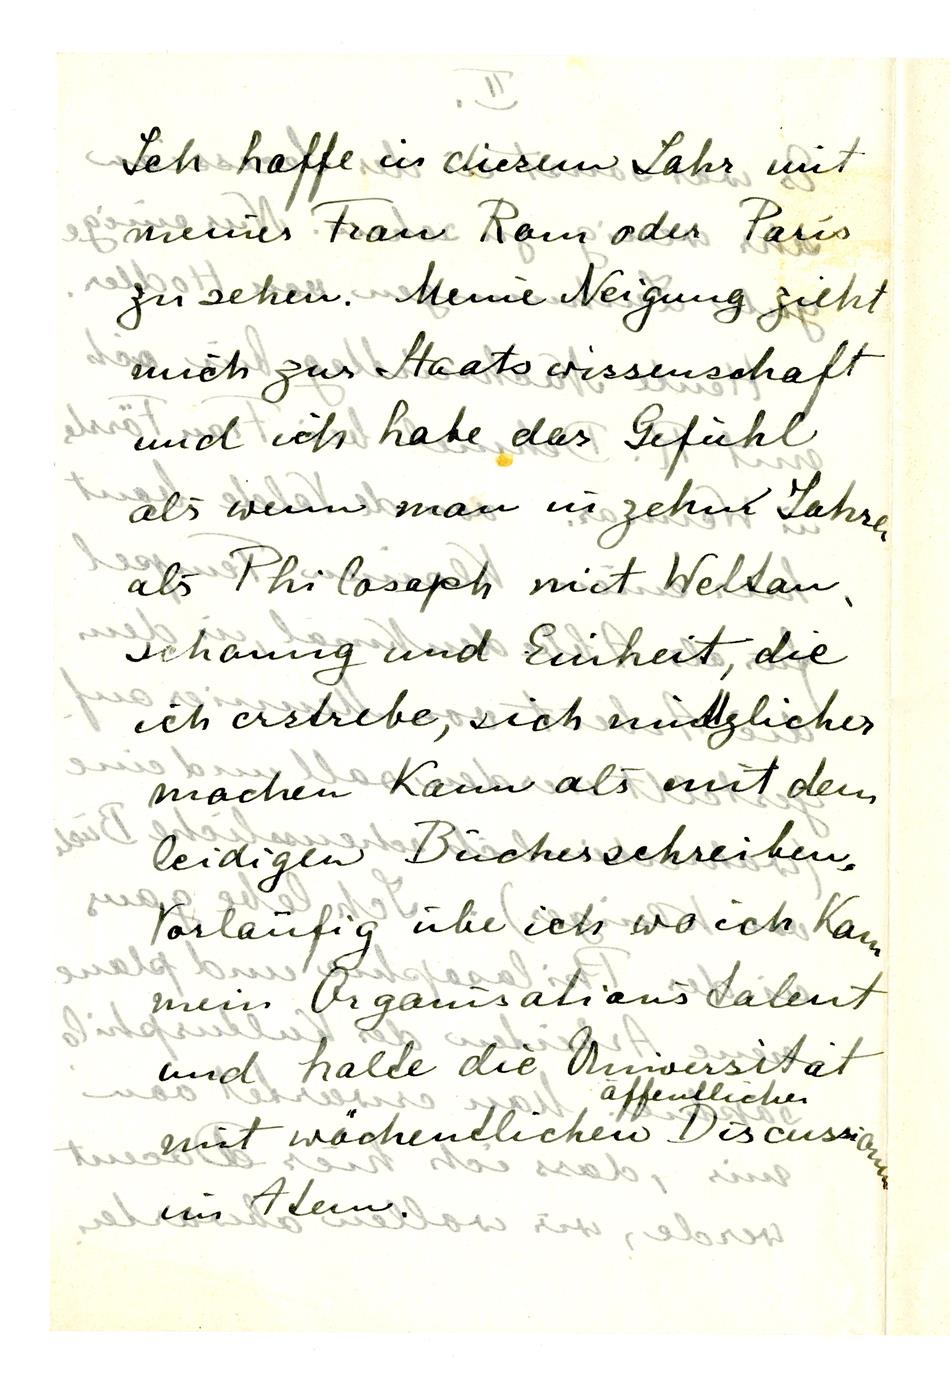 Ich hoffe in diesem Jahr mit
meiner Frau Rom oder Paris
zu sehen. Meine Neigung zieht
mich zur Staatswissenschaft
und ich habe das Gefühl
als wenn man in zehn Jahren
als Philosoph mit Weltan-
schauung und Einheit, die
ich erstrebe, sich nützlicher
machen kann als mit dem
leidigen Bücherschreiben.
Vorläufig übe ich wo ich kann
mein Organisationstalent
und halte die Universität
öffentlicher
mit wöchentlichen Discussionen
im Atem.